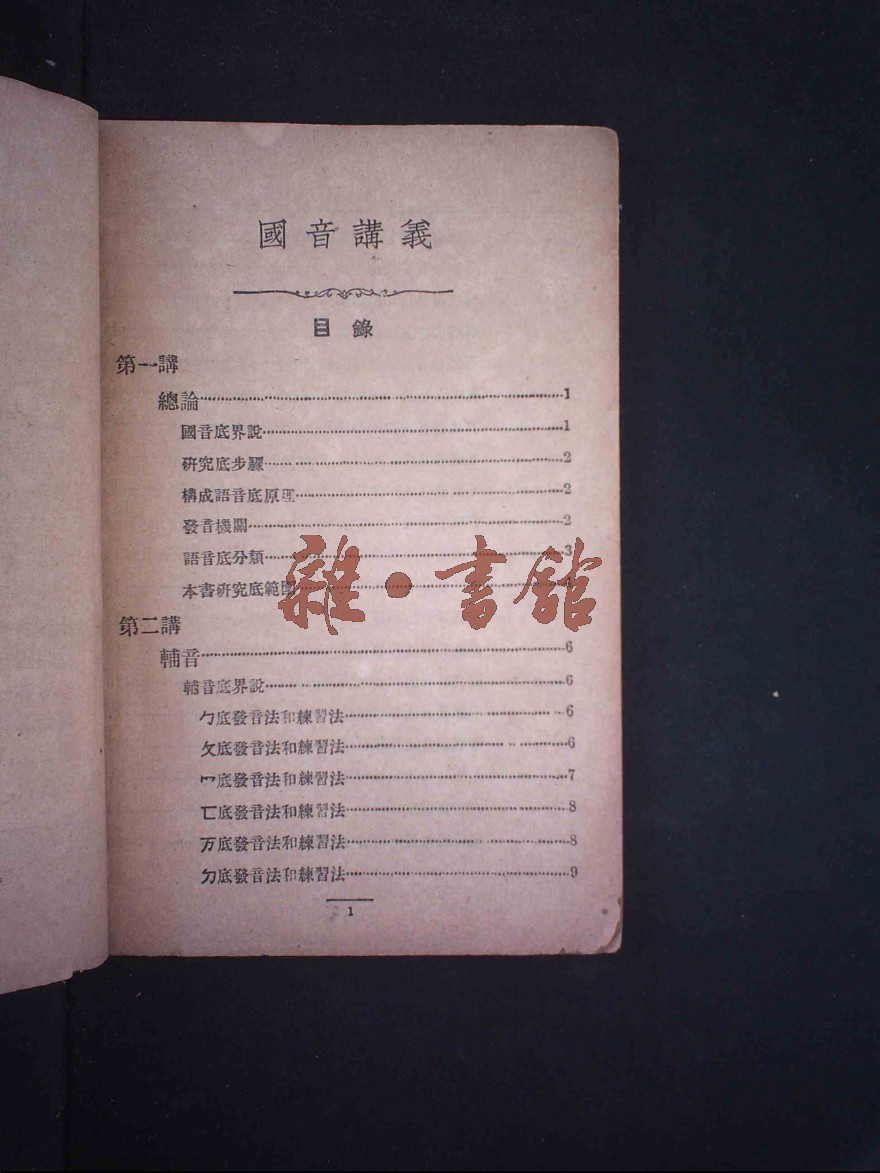 國音講義
目錄
第一講
總論……1
國音底界說……1
研究底步驟……2
構成語音底原理……2
發音機關……2
語音底分類……3
本書研究底範圍……4
雜·書館
第二講
輔音……6
輔音底界說……6
ㄅ底發音法和練習法……6
ㄆ底發音法和練習法……6
ㄇ底發音法和練習法……7
ㄈ底發音法和練習法……8
万底發音法和練習法……8
ㄉ底發音法和練習法……9
1